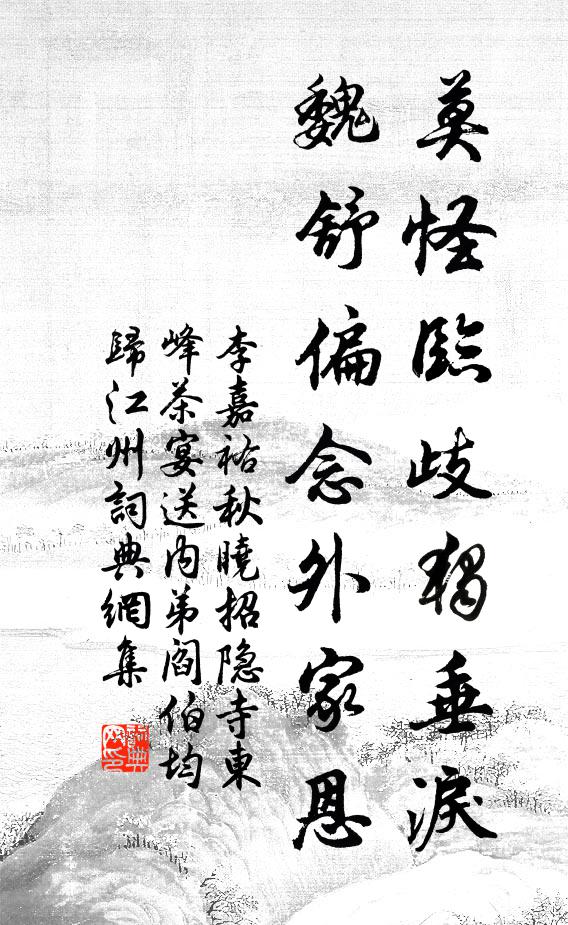 莫怪臨歧獨垂淚
魏舒偏念外家恩
李嘉祐秋曉招隐寺東
峰茶宴送内弟閻伯均
歸江州詞典網集